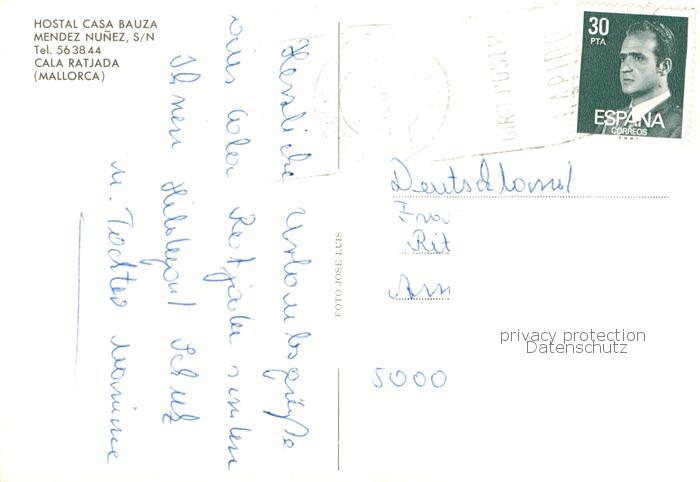 HOSTAL CASA BAUZA
MENDEZ NUÑEZ, S/N
Tel. 563844
CALA RATJADA
(MALLORCA)
Herzliche Urlaubsgrüße
aus Cala Ratjada senden
Ihnen Hildegard Schulz
u. Tochter
FOTO JOSE LUIS
GIRO POSTAL
RAPIDO
30
PTA
ESPAÑA
CORREOS
F.N.M.T.
Deutschland
Frau
Rit
Am
privacy protection
Datenschutz
5000